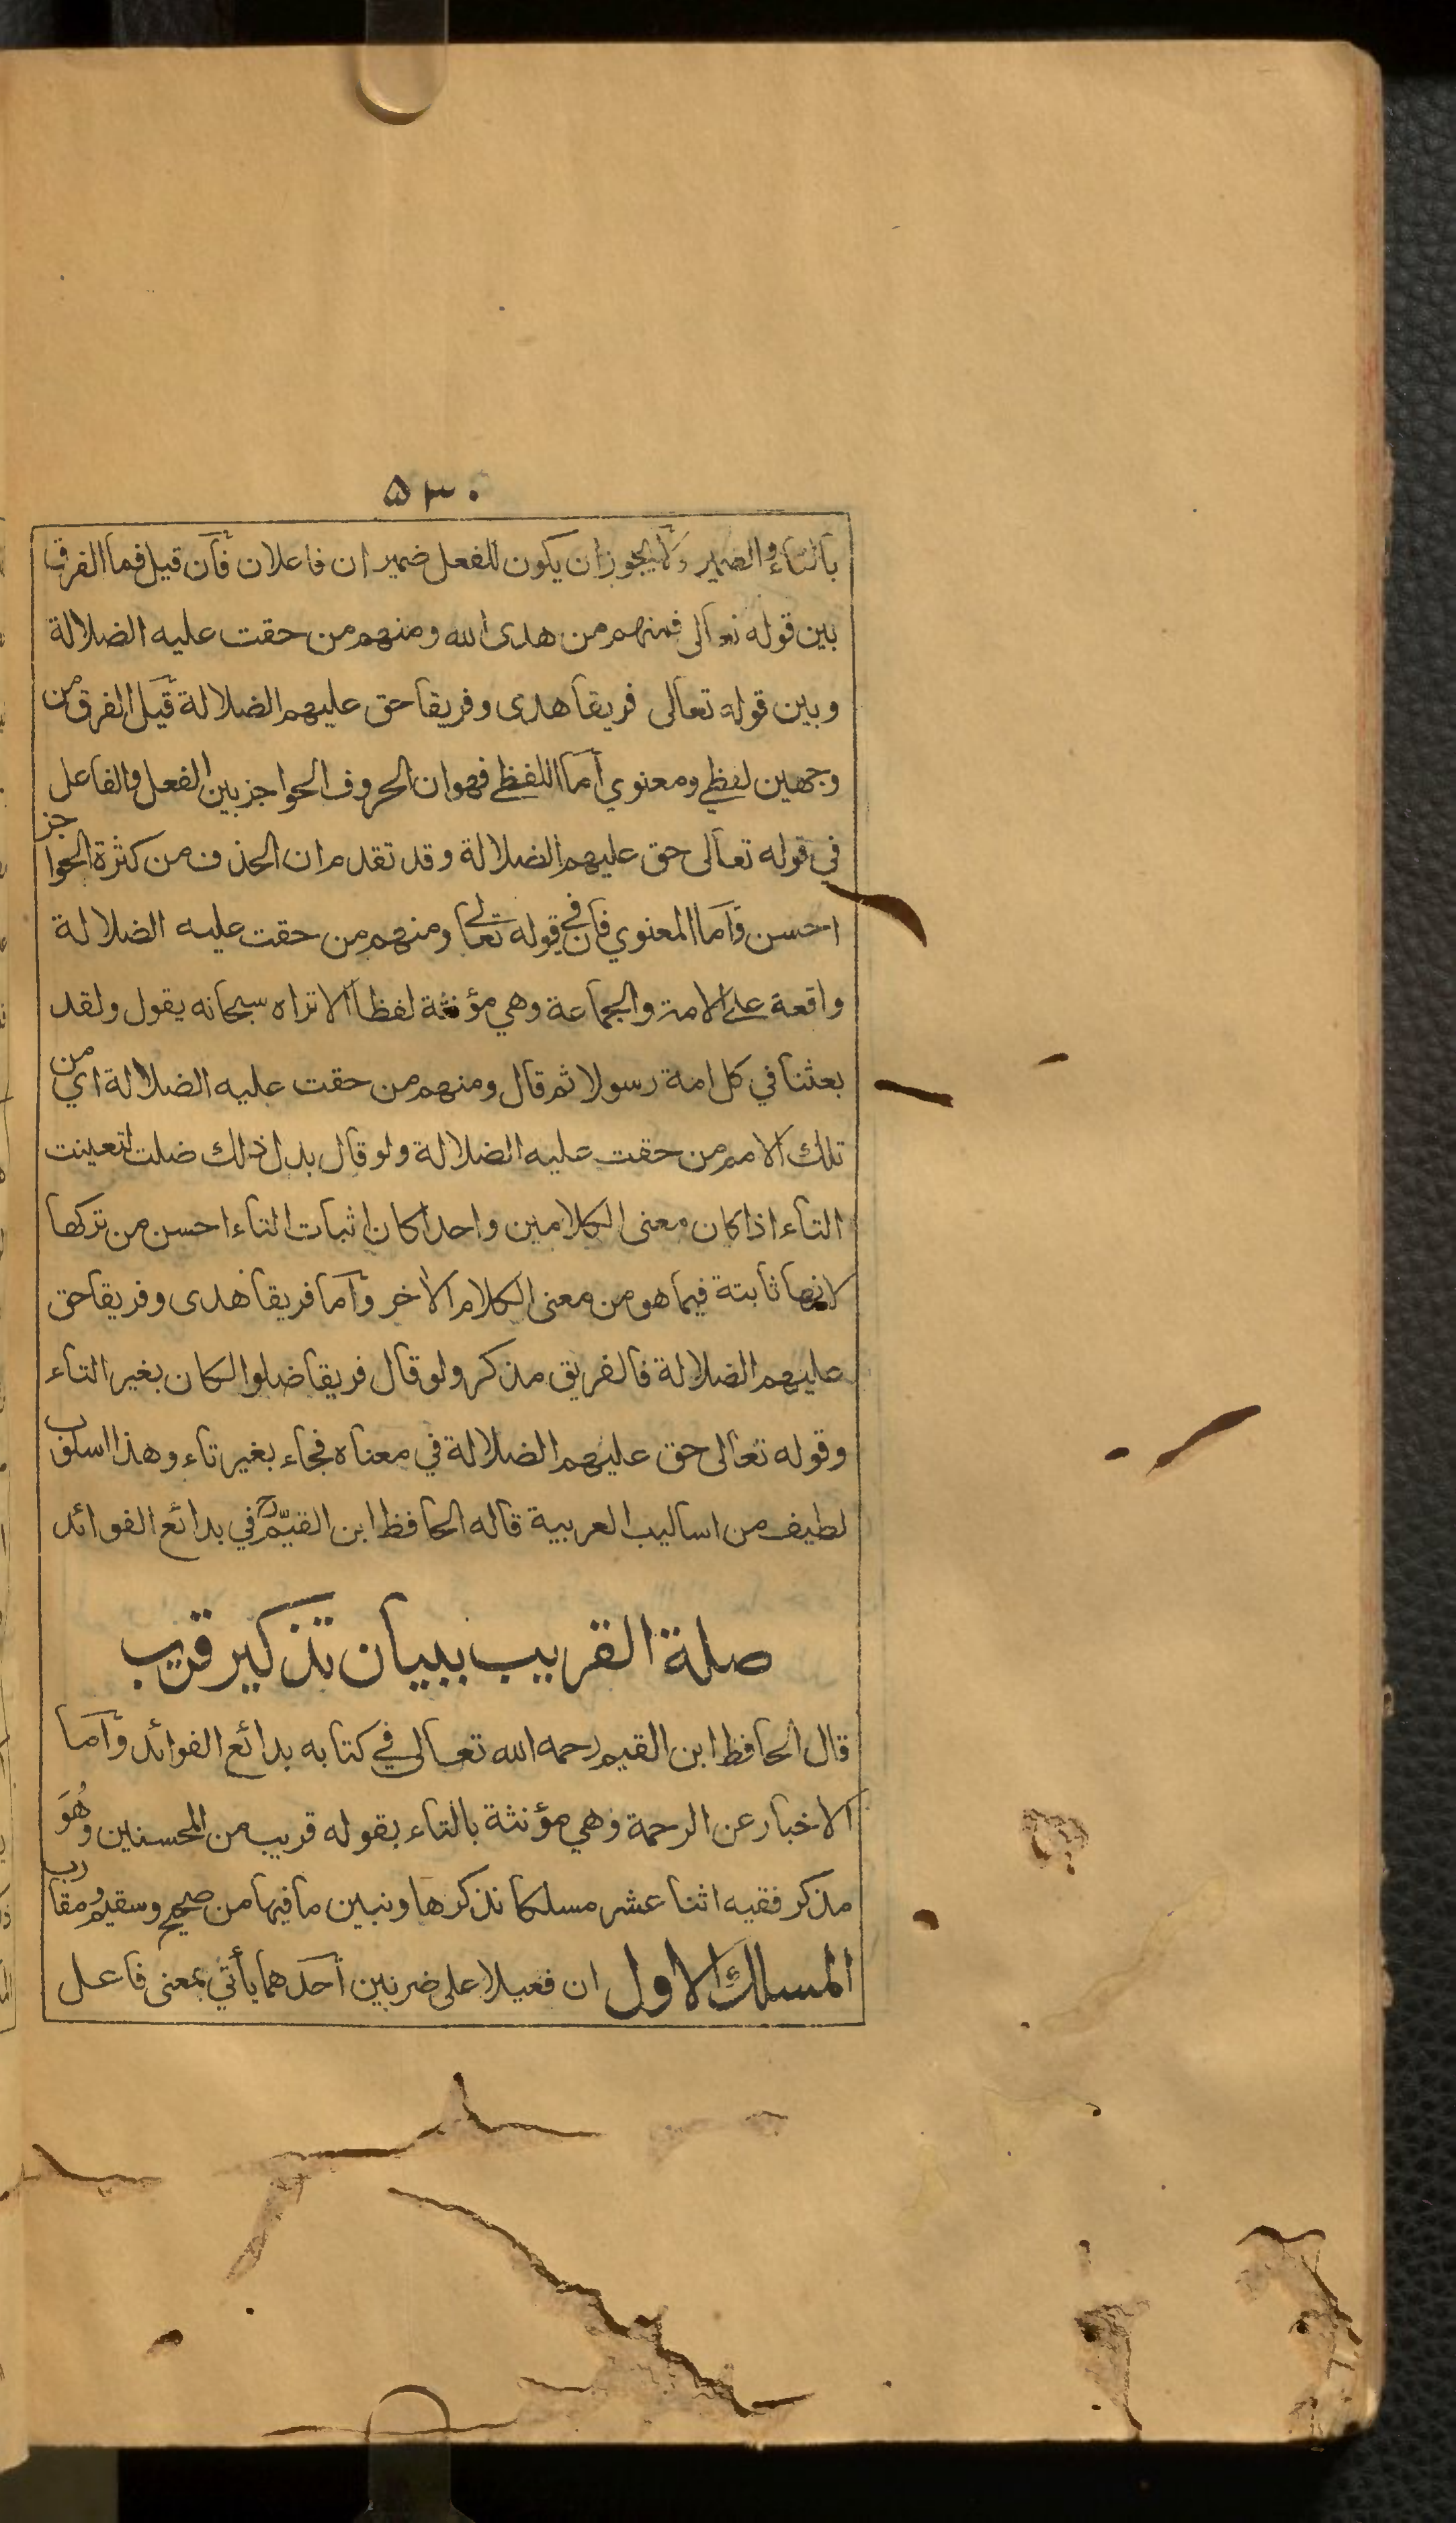 ۵۳۰
بالتاء والضمير ولا يجوز ان يكون للفعل ضميران فاعلان فان قيل فما الفرق
بين قوله تعالى فمنهم من هدى الله ومنهم من حقت عليه الضلالة
وبين قوله تعالى فريقا هدى وفريقا حق عليهم الضلالة قيل الفرق من
وجهين لفظي ومعنوي أما اللفظي فهو ان الحروف الحواجز بين الفعل والفاعل
في قوله تعالى حق عليهم الضلالة وقد تقدم ان الحذف من كثرة الحواجز
احسن وأما المعنوي فان في قوله تعالى ومنهم من حقت عليه الضلالة
واقعة على الامة والجماعة وهي مؤنثة لفظا ألا تراه سبحانه يقول ولقد
بعثنا في كل امة رسولا ثم قال ومنهم من حقت عليه الضلالة اي من
تلك الامم من حقت عليه الضلالة ولو قال بدل ذلك ضلت لتعينت
التاء اذا كان معنى الكلامين واحدا كان اثبات التاء احسن من تركها
لانها ثابتة فيما هو من معنى الكلام الأخر وأما فريقا هدى وفريقا حق
عليهم الضلالة فالفريق مذكر ولو قال فريقا ضلوا لكان بغير التاء
وقوله تعالى حق عليهم الضلالة في معناه فجاء بغير تاء وهذا اسلوب
لطيف من اساليب العربية قاله الحافظ ابن القيّم رح في بدائع الفوائد
صلة القريب ببيان تذكير قريب
قال الحافظ ابن القيم رحمه الله تعالى في كتابه بدائع الفوائد وأما
الاخبار عن الرحمة وهي مؤنثة بالتاء بقوله قريب من المحسنين وهُوَ
مذكر ففيه اثنا عشر مسلكا نذكرها ونبين ما فيها من صحيح وسقيم ومقارب
المسلك الاول ان فعيلا على ضربين أحدهما يأتي بمعنى فاعل